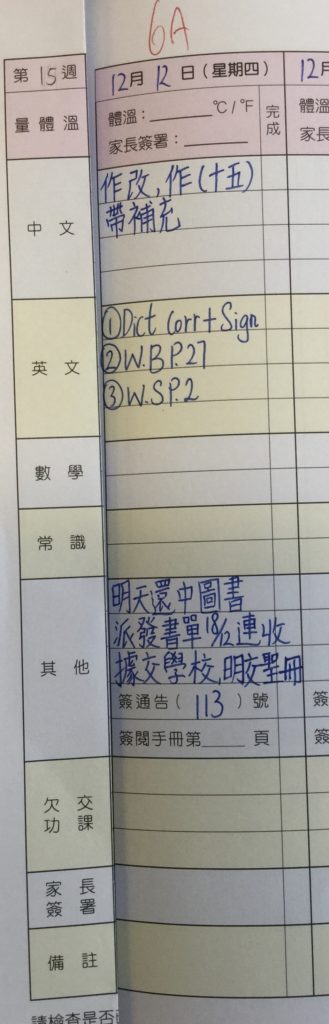 6A
第15週
12月12日(星期四)
12月
量體溫
體溫：______℃/℉
家長簽署：______
完成
體溫
家長
中文
作改,作(十五)
帶補充
英文
①Dict Corr+Sign
②W.B P.27
③W.S P.2
數學
常識
其他
明天還中圖書
派發書單18/12連收
據交學校,明交聖冊
簽通告(113)號
簽閱手冊第____頁
簽
簽
欠交功課
家長簽署
備註
請檢查是否